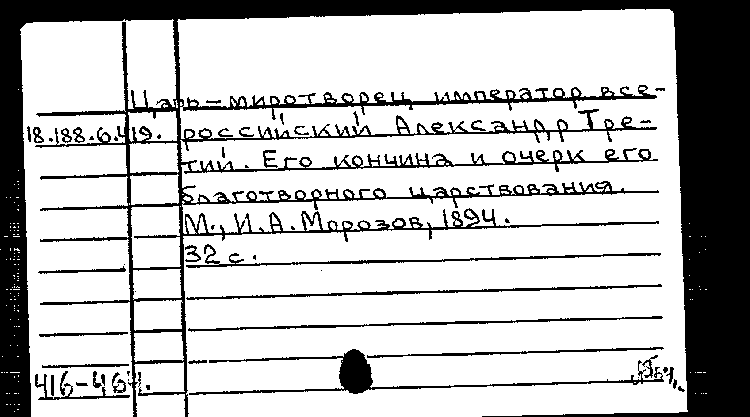 Царь-миротворец император все-
18.188.6.419. российский Александр Тре-
тий. Его кончина и очерк его
благотворного царствования.
М., И.А. Морозов, 1894.
32 с.
416-464.